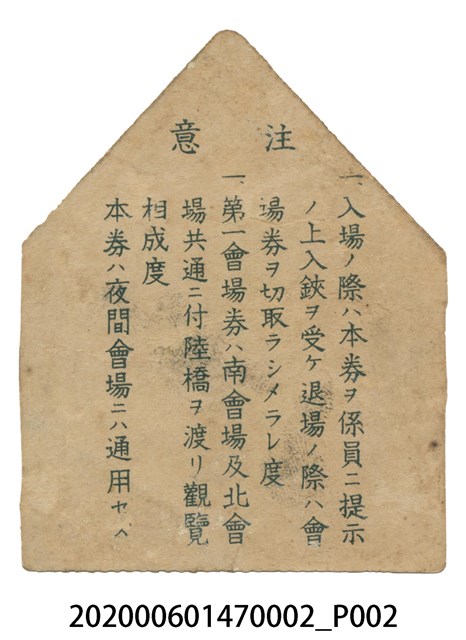 注意
一、入場ノ際ハ本券ヲ係員ニ提示
ノ上入鋏ヲ受ケ退場ノ際ハ會
場券ヲ切取ラシメラレ度
一、第一會場券ハ南會場及北會
場共通ニ付陸橋ヲ渡リ觀覽
相成度
本券ハ夜間會場ニハ通用セズ
202000601470002_P002